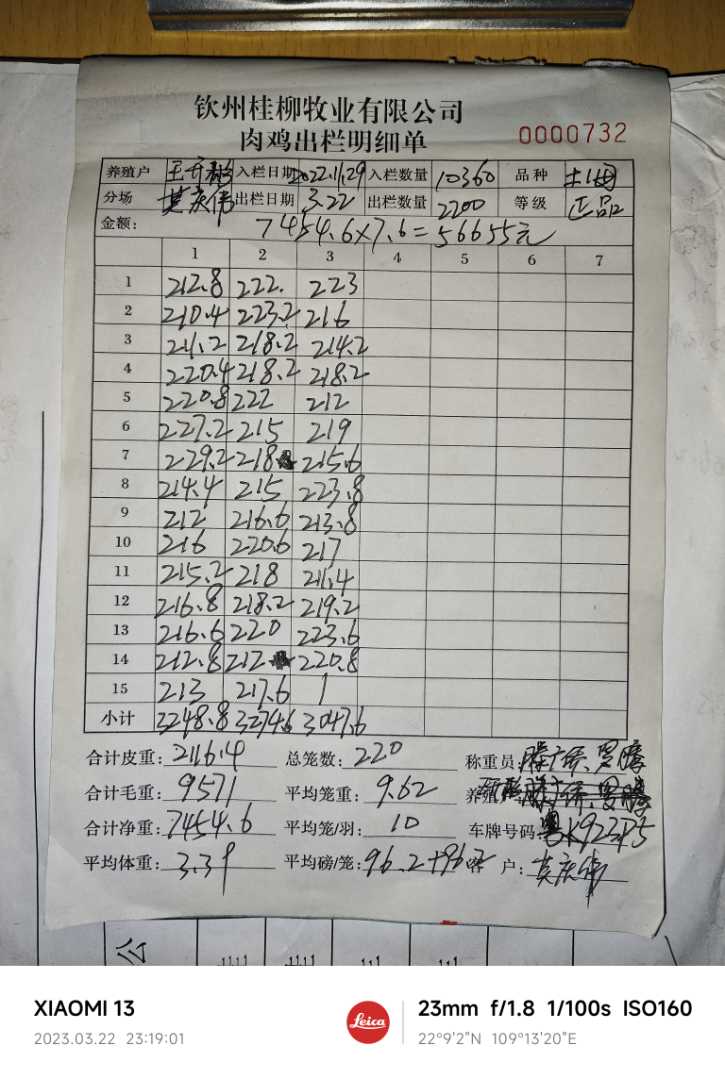 钦州桂柳牧业有限公司
肉鸡出栏明细单 0000732
养殖户 入栏日期 2022.11.29 入栏数量 10360 品种
分场 莫庆伟 出栏日期 3.22 出栏数量 2200 等级 正品
金额: 7454.6×7.6=56655元
1 2 3 4 5 6 7
1 212.8 222. 223
2 210.4 223.2 216
3 211.2 218.2 214.2
4 220.4 218.2 218.2
5 220.8 222 212
6 227.2 215 219
7 229.2 218 215.6
8 214.4 215 223.8
9 212 216.6 213.8
10 216 220.6 217
11 215.2 218 211.4
12 216.8 218.2 219.2
13 216.6 220 223.6
14 212.8 212 220.8
15 213 217.6 1
小计 3248.8 3274.6 3047.6
合计皮重: 2116.4 总笼数: 220 称重员:
合计毛重: 9571 平均笼重: 9.62
合计净重: 7454.6 平均笼/羽: 10 车牌号码:
平均体重: 3.39 平均磅/笼: 96.2 户: 莫庆伟
公
XIAOMI 13
2023.03.22 23:19:01
Leica
23mm f/1.8 1/100s ISO160
22°9'2"N 109°13'20"E